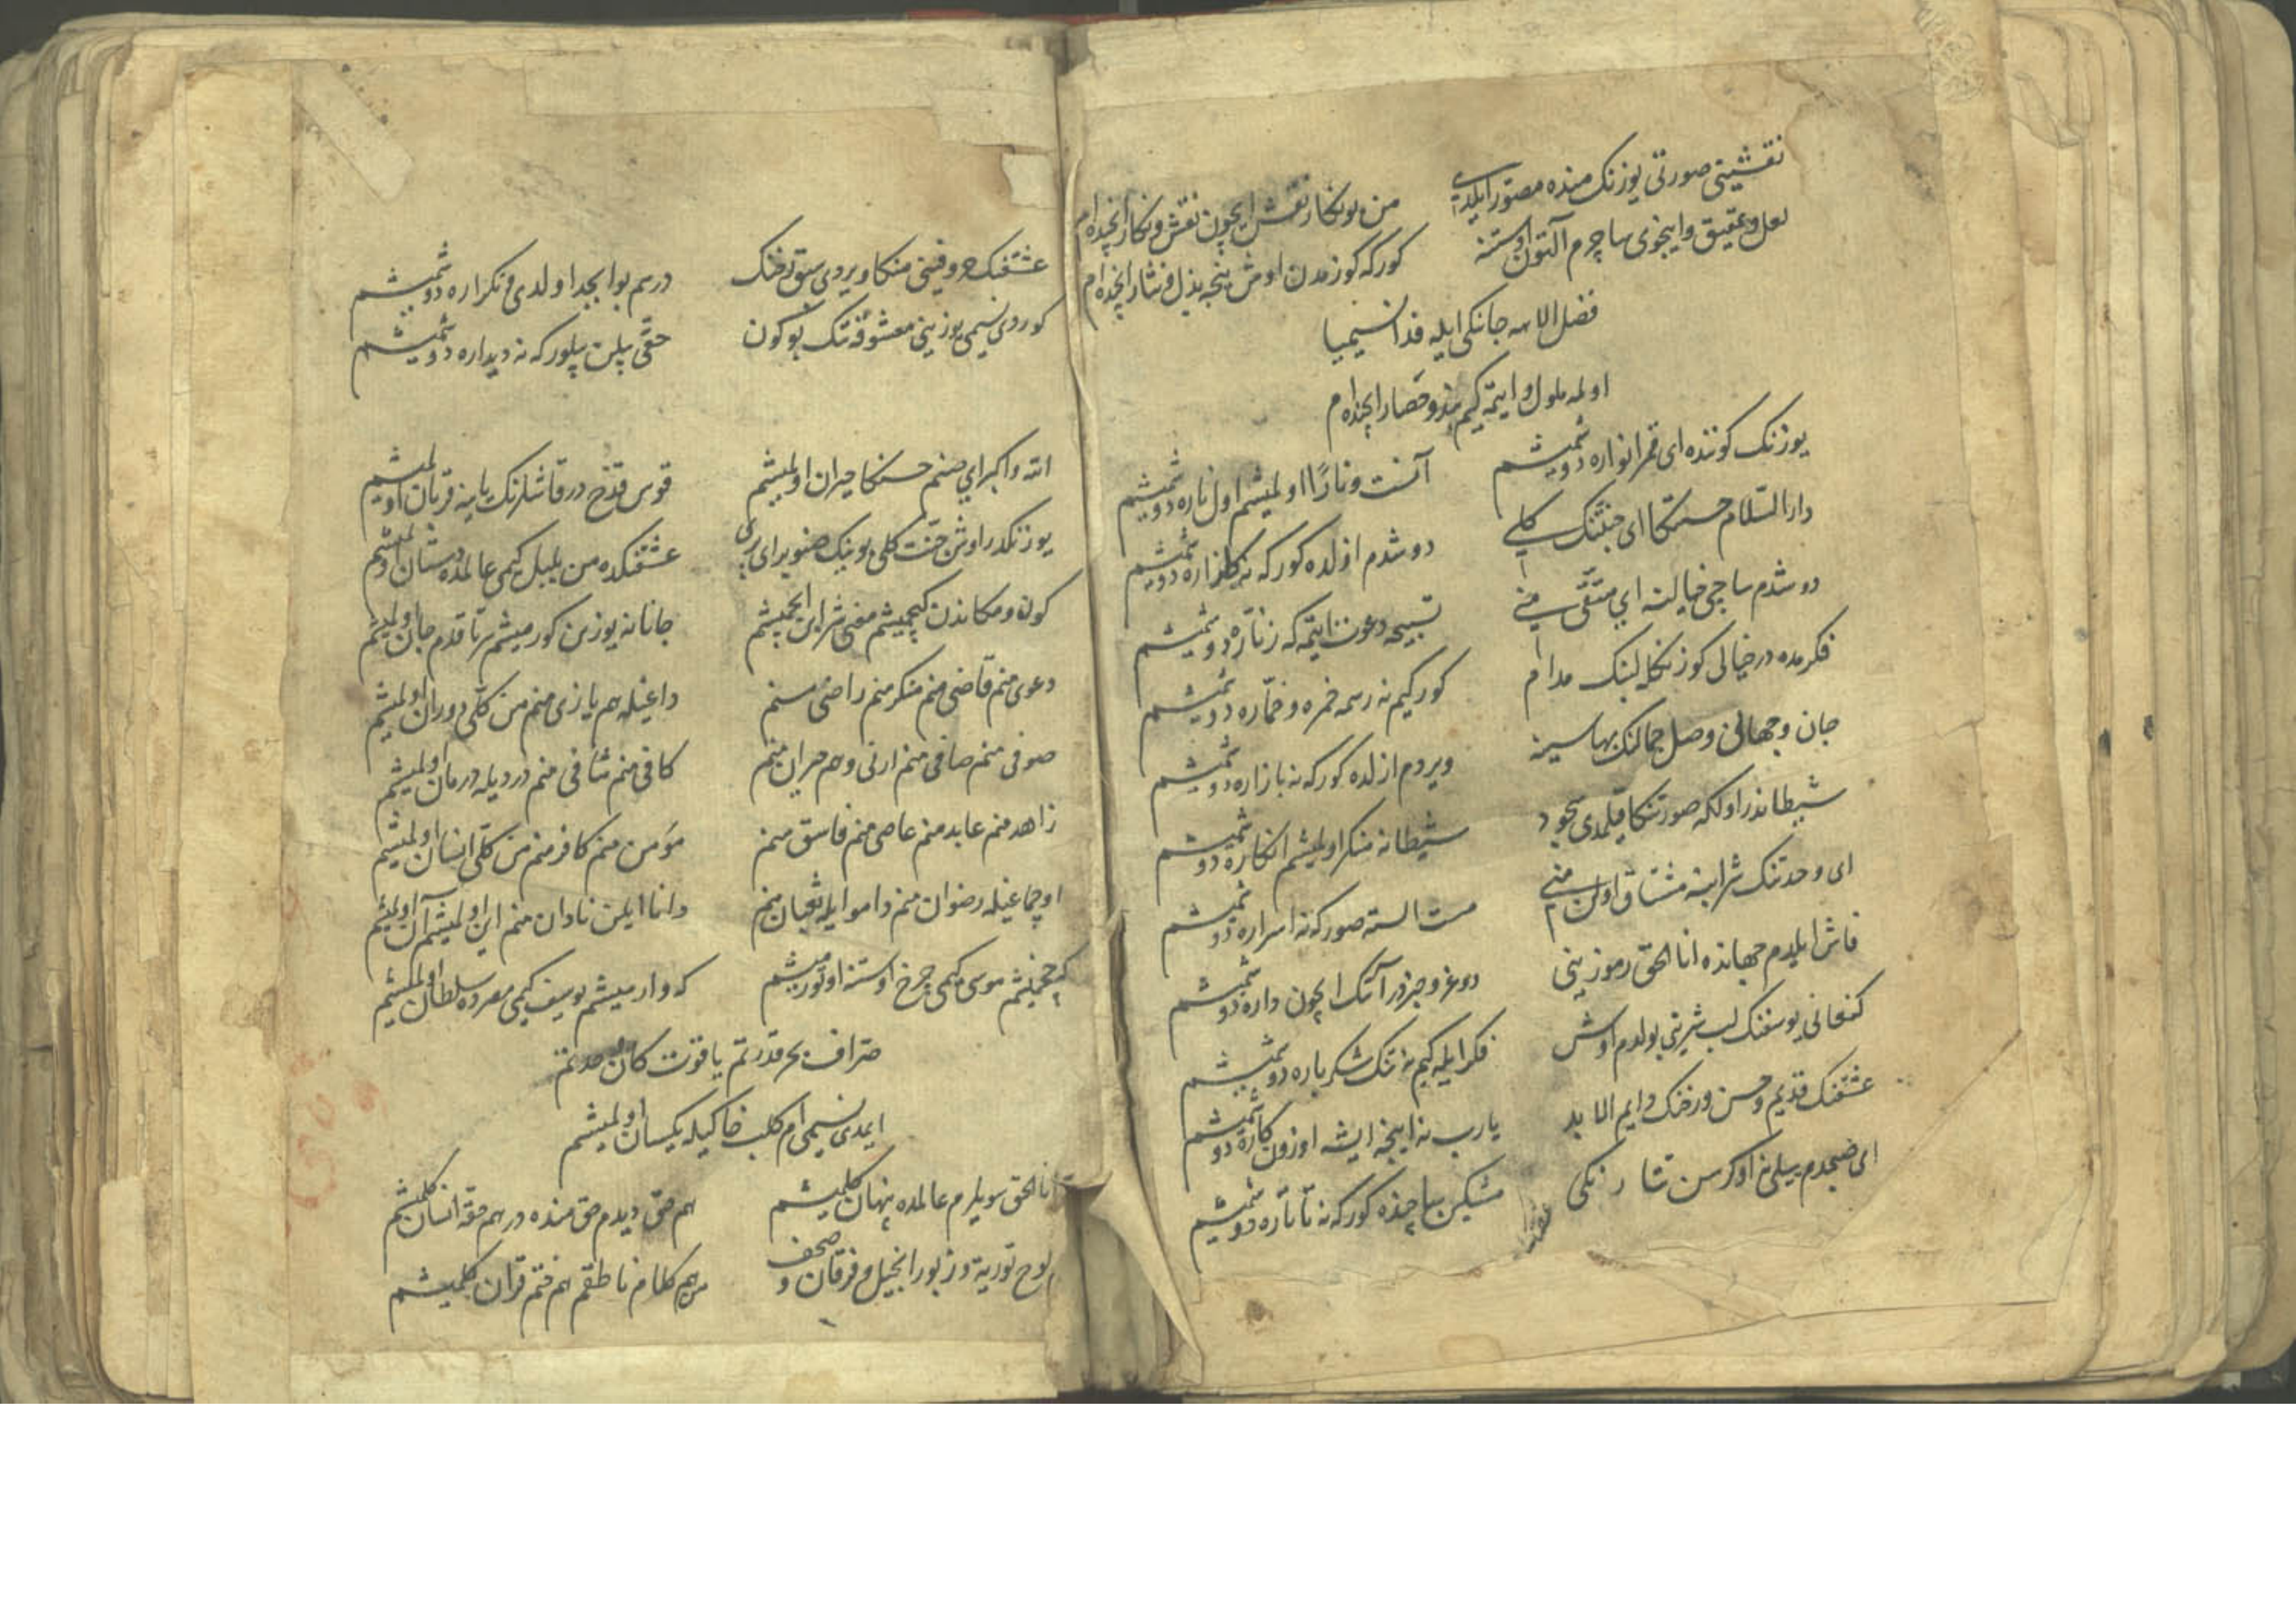 نقشینی صورتی یوزنک منده مصور ایلدی
من بو نکار نقش ایچون نقش و نکار ایچنده‌ام
لعل و عقیق و اینجوی ساچرم آلتون اوستنه
کورکه کوزمدن اوش نیجه بذل و نثار ایچنده‌ام
فضل الاهه جانکی ایله فدا نسیمیا
اولمه ملول و ایتمه کیم بند و حصار ایچنده‌ام
یوزنک کوننده ای قمر انواره دوشمیشم
آنست و نارًا اولمیشم اول ناره دوشمیشم
دار السلام حسنکا ای جنتنک کلی
دوشدم ازلده کورکه نه کلزاره دوشمیشم
دوشدم ساچی خیالنه ای متقی منی
تسبیحه دعوت ایتمه که زناره دوشمیشم
فکرمده در خیالی کوزنکله لبنک مدام
کور کیم نه رسمه خمره و خماره دوشمیشم
جان و جهانی وصل جمالنک بهاسینه
ویردم ازلده کورکه نه بازاره دوشمیشم
شیطاندر اولکه صورتنکا قیلمدی سجود
شیطانه منکر اولمیشم انکاره دوشمیشم
ای وحدتنک شرابنه مشتاق اولن منی
مست السته صور که نه اسراره دوشمیشم
فاش ایلدم جهانده انا الحق رموزینی
دوغرو خبردر آنک ایچون داره دوشمیشم
کنعانی یوسفنک لب شیرینی بولدم اوش
فکر ایله کیم نه تنک شکر باره دوشمیشم
عشقنک قدیم و حسن و رخنک دایم الابد
یارب نه اینجه ایشه اوزون کاره دوشمیشم
ای صبحدم ییلی نه اوکرسن تتارنکی
مشکین ساچنده کورکه نه تاتاره دوشمیشم
عشقنک
عشقنک حروفینی منکا ویردی سبق رخنک
درسم بو ابجد اولدی و تکراره دوشمیشم
کوردی نسیمی یوزینی معشوقه‌نک بوکون
حقی بیلن بیلور که نه دیداره دوشمیشم
الله و اکبر ای صنم حسنکا حیران اولمیشم
قوس قزح در قاشلرنک یاینه قربان اولمیشم
یوزنکدر اوش جنت کلی بوینک صنوبر ای پری
عشقنکده من بلبل کیمی عالمده دستان اولمیشم
کون و مکاندن کیچمیشم مغنی شرابن ایچمیشم
جانانه یوزین کورمیشم سرتا قدم جان اولمیشم
دعوی منم قاضی منم منکر منم راضی منم
داغیله هم یازی منم من کلی دوران اولمیشم
صوفی منم صافی منم ارنی و هم حیران منم
کافی منم شافی منم دردیله درمان اولمیشم
زاهد منم عابد منم عاصی منم فاسق منم
مؤمن منم کافر منم من کلی انسان اولمیشم
اوچماغیله رضوان منم دامو ایله ثعبان منم
دانا ایلن نادان منم این اولمیشم آن اولمیشم
کیچمیشم موسی کیمی چرخ اوستنه اوتورمیشم
که وارمیشم یوسف کیمی مصرده سلطان اولمیشم
صراف بحر قدرتم یاقوت کان وحدتم
ایمدی نسیمی‌ام کلب خاکیله یکسان اولمیشم
انا الحق سویلرم عالمده پنهان کلمیشم
هم حق دیدم حق منده در هم حقه انسان کلمیشم
لوح توریة و زبور انجیل و فرقان و صحف
من هم کلام ناطقم هم ختم قران کلمیشم